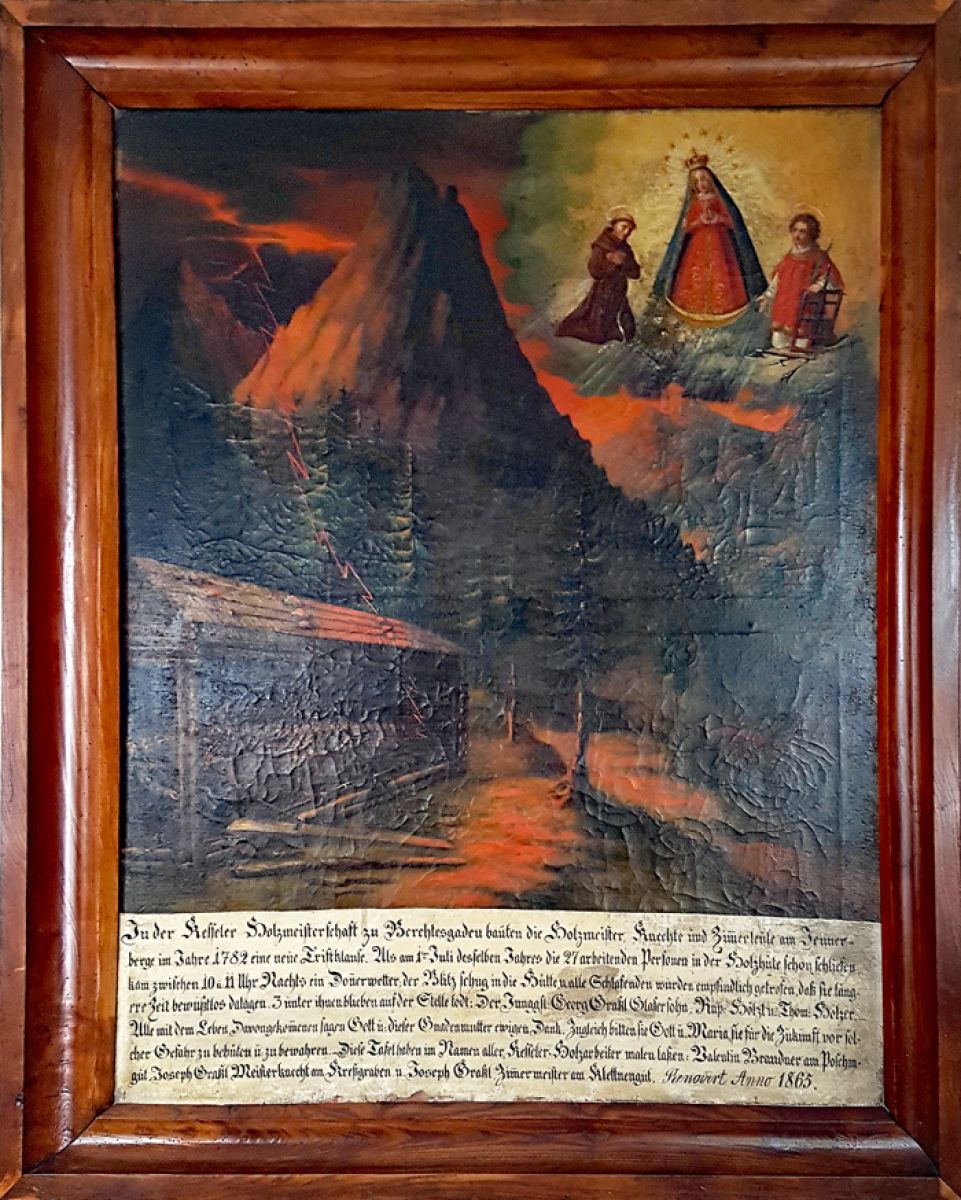 In der Kesseler Holzmeisterschaft zu Berchtesgaden bauten die Holzmeister, Knechte und Zim̄erleute am Jenner-
berge im Jahre 1782 eine neue Triftklause. Als am 1ten Juli desselben Jahres die 27 arbeitenden Personen in der Holzhüte schon schliefen
kam zwischen 10 u. 11 Uhr Nachts ein Doñerwetter, der Blitz schug in die Hütte u. alle Schlafenden wurden empfindlich getrofen, daß sie läng-
ere Zeit bewußtlos dalagen. 3 unter ihnen blieben auf der Stelle todt: Der Junggsll. Georg Graßl Glasersohn, Rup: Hölzl u: Thom: Holzer.
Alle mit dem Leben, Davongekom̄enen sagen Gott u: dieser Gnadenmutter ewigen Dank. Zugleich bitten sie Gott u. Maria, sie für die Zukunft vor sol-
cher Gefahr zu behüten u. zu bewahren. Diese Tafel haben im Namen aller, Kesseler-Holzarbeiter malen laßen: Valentin Brandner am Poschn-
gut, Joseph Graßl Meisterknecht am Kreßgraben u. Joseph Graßl Zim̄ermeister am Klettnengut. Renovirt Anno 1865.